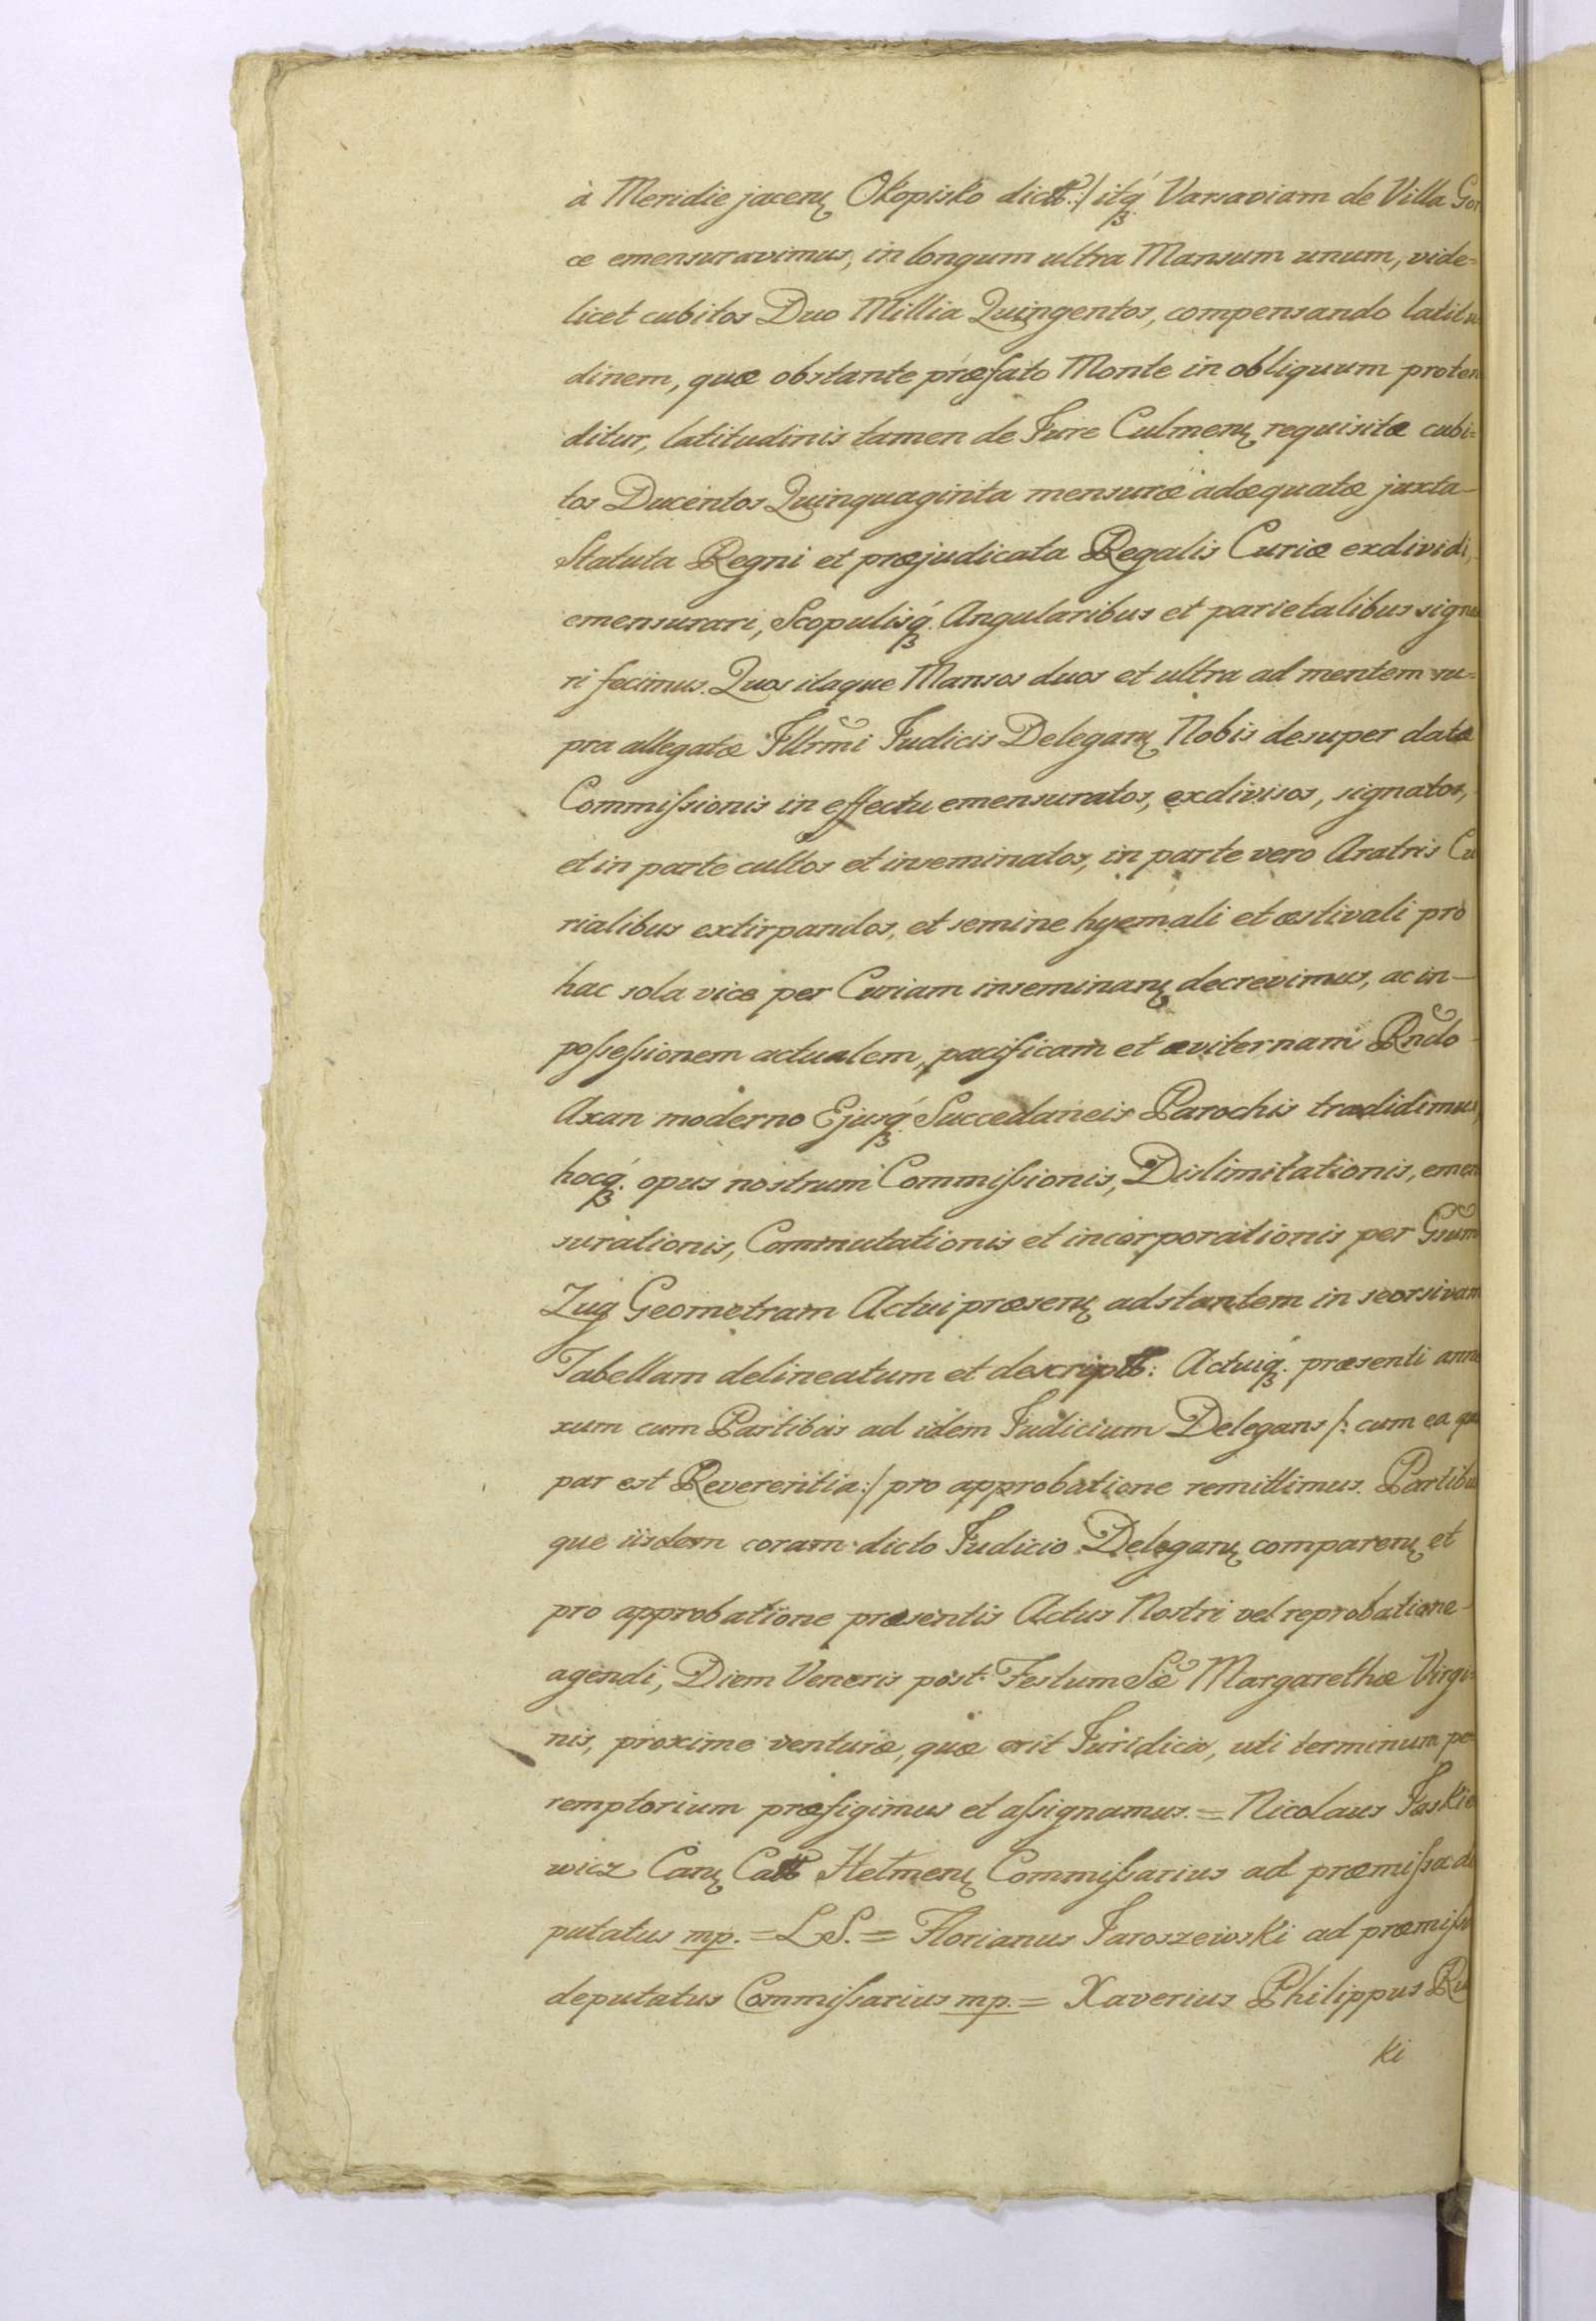 à Meridie jacenꝫ Okopisko dictt:/ itqꝫ Varsaviam de Villa Gor
ce emensuravimus, in longum ultra Mansum unum, vide=
licet cubitos Duo Millia Quingentos, compensando latitu
dinem, quæ obstante præfato Monte in obliquum proten
ditur, latitudinis tamen de Jure Culmenꝫ requisitæ cubi=
tos Ducentos Quinquaginta mensuræ adæquatæ juxta
Statuta Regni et præjudicata Regalis Curiæ exdividi,
emensurari, Scopulisqꝫ. Angularibus et parietalibus signa
ri fecimus. Quos itaque Mansos duos et ultra ad mentem su=
pra allegatæ Illrmi Judicis Deleganꝫ Nobis desuper datæ
Commiſsionis in effectu emensuratos, exdivisos, signatos,
et in parte cultos et inseminatos, in parte vero Aratris Cu
rialibus extirpandos, et semine hyemali et æstivali pro
hac sola vice per Curiam inseminanꝫ decrevimus, ac in
poſseſsionem actualem, pacificam et æviternam Rndo
Axan moderno Ejusqꝫ. Succedaneis Parochis tradidimus,
hocqꝫ. opus nostrum Commiſsionis, Dislimitationis, emen
surationis, Commutationis et incorporationis per Gsum
Zug Geometram Actui præsenꝫ adstantem in seorsivam
Tabellam delineatum et descriptt: Actuiqꝫ. præsenti anne
xum cum Partibus ad idem Judicium Delegans /: cum ea qua
par est Reverentia:/ pro approbatione remittimus. Partibus
que iisdem coram dicto Judicio Deleganꝫ comparenꝫ et
pro approbatione præsentis Actus Nostri vel reprobatione
agendi, Diem Veneris post Festum Sæ Margarethæ Virgi=
nis, proxime venturæ, quæ erit Juridica, uti terminum pe
remptorium præfigimus et aſsignamus. = Nicolaus Jaskie
wicz Canꝫ Catt Helmenꝫ Commiſsarius ad præmiſsa de
putatus mp. = L.S. = Florianus Jaroszewski ad præmiſsa
deputatus Commiſsarius mp. = Xaverius Philippus Ru
ki